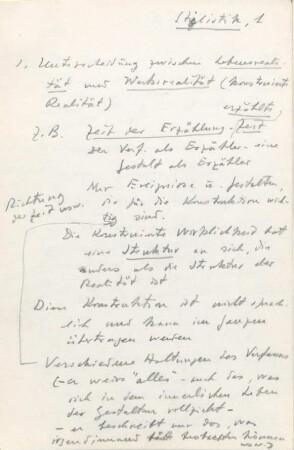 Stilistik, 1
1. Unterscheidung zwischen Lebensreali-
tät und Werksrealität (Konstruierte
Realität)
erzählte
Z.B. Zeit der Erzählung - Zeit
Der Verf. als Erzähler - eine
Gestalt als Erzähler
Nur Ereignisse u. Gestalten,
Richtung
der Zeit usw.
die für die Konstruktion wich-
tig sind.
Die Konstruierte Wirklichkeit hat
eine Struktur an sich, die
anders als die Struktur der
Realität ist
Diese Konstruktion ist nicht sprach-
lich und kann im ganzen
übertragen werden
Verschiedene Haltungen des Verfassers
(- er weiss "alles" - auch das, was
sich in dem innerlichen Leben
der Gestalten vollzieht -
- er beschreibt nur das, was
irgendjemand hätte beobachten können
usw.)